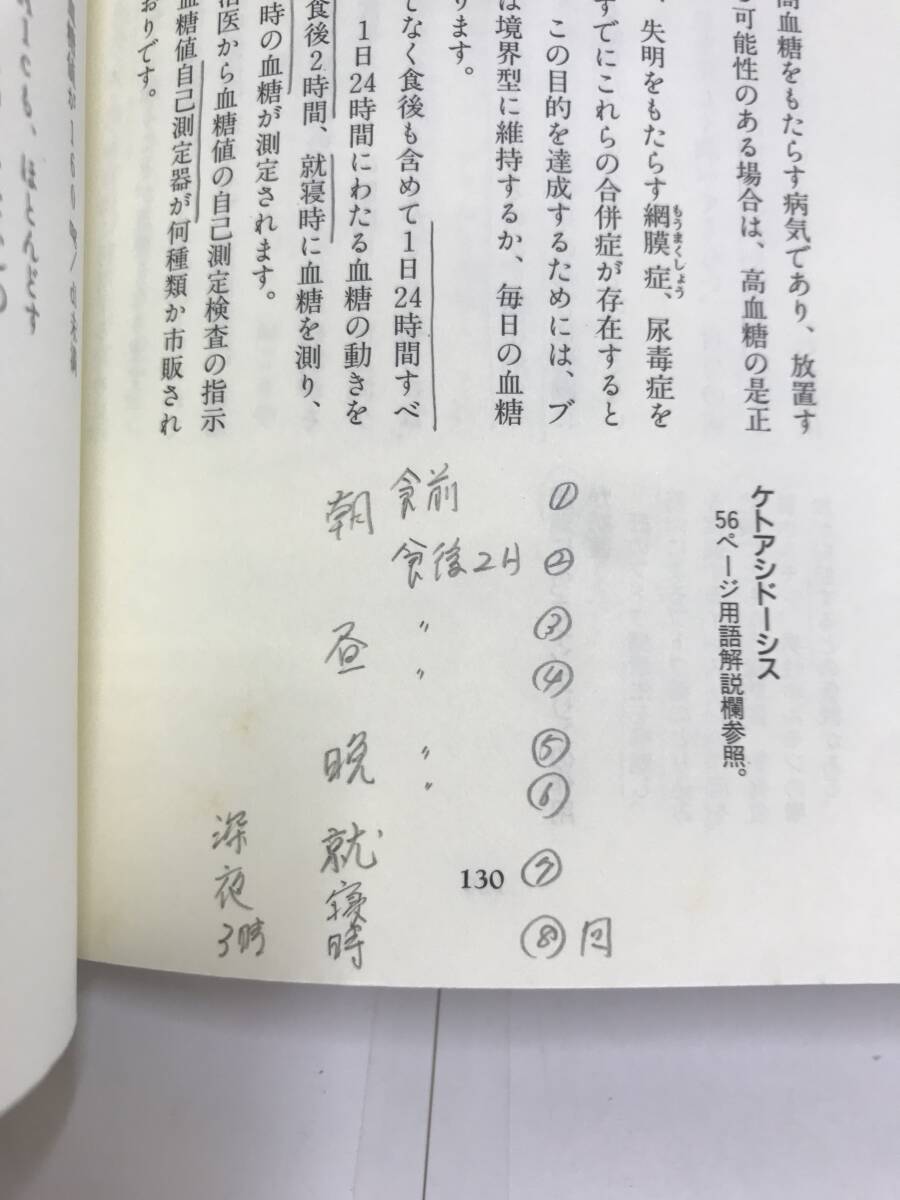 高血糖をもたらす病気であり、放置す
可能性のある場合は、高血糖の是正
、失明をもたらす網膜症、尿毒症を
もうまくしょう
すでにこれらの合併症が存在すると
この目的を達成するためには、ブ
は境界型に維持するか、毎日の血糖
ります。
てなく食後も含めて1日24時間すべ
1日24時間にわたる血糖の動きを
食後2時間、就寝時に血糖を測り、
時の血糖が測定されます。
治医から血糖値の自己測定検査の指示
血糖値自己測定器が何種類か市販され
おりです。
も、ほとんどす
ケトアシドーシス
56ページ用語解説欄参照。
朝 食前 ①
食後2H ②
昼 〃 ③
〃 ④
晩 〃 ⑤
〃 ⑥
就寝時 ⑦
深夜3時 ⑧回
130